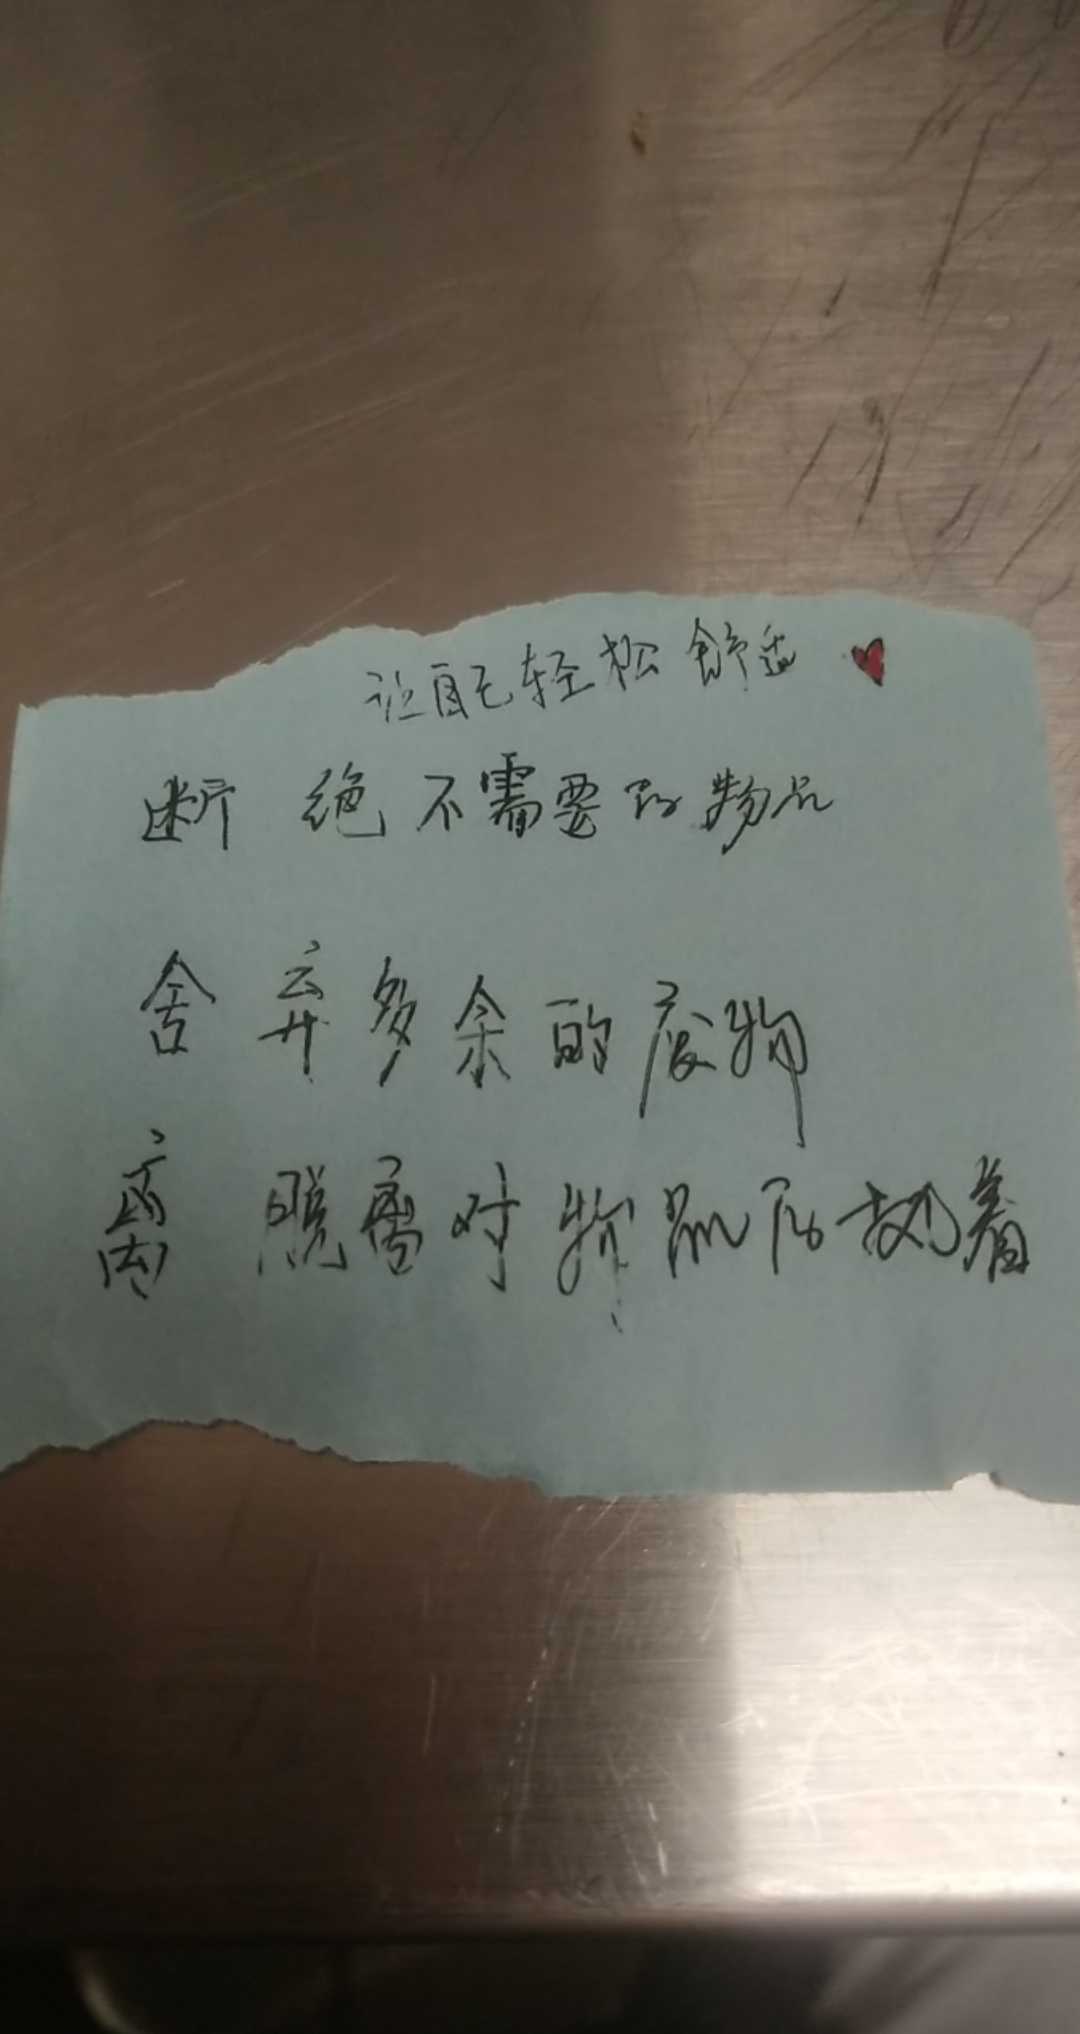 让自己轻松舒适
断 绝不需要的物品
舍 弃多余的废物
离 脱离对物品的执着